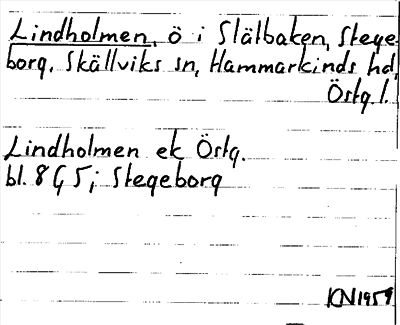 Lindholmen, ö i Slätbaken, Stege-
borg, Skällviks sn, Hammarkinds hd,
Östg. l.
Lindholmen ek Östg.
bl. 8 G 5 i Stegeborg
KN 1959